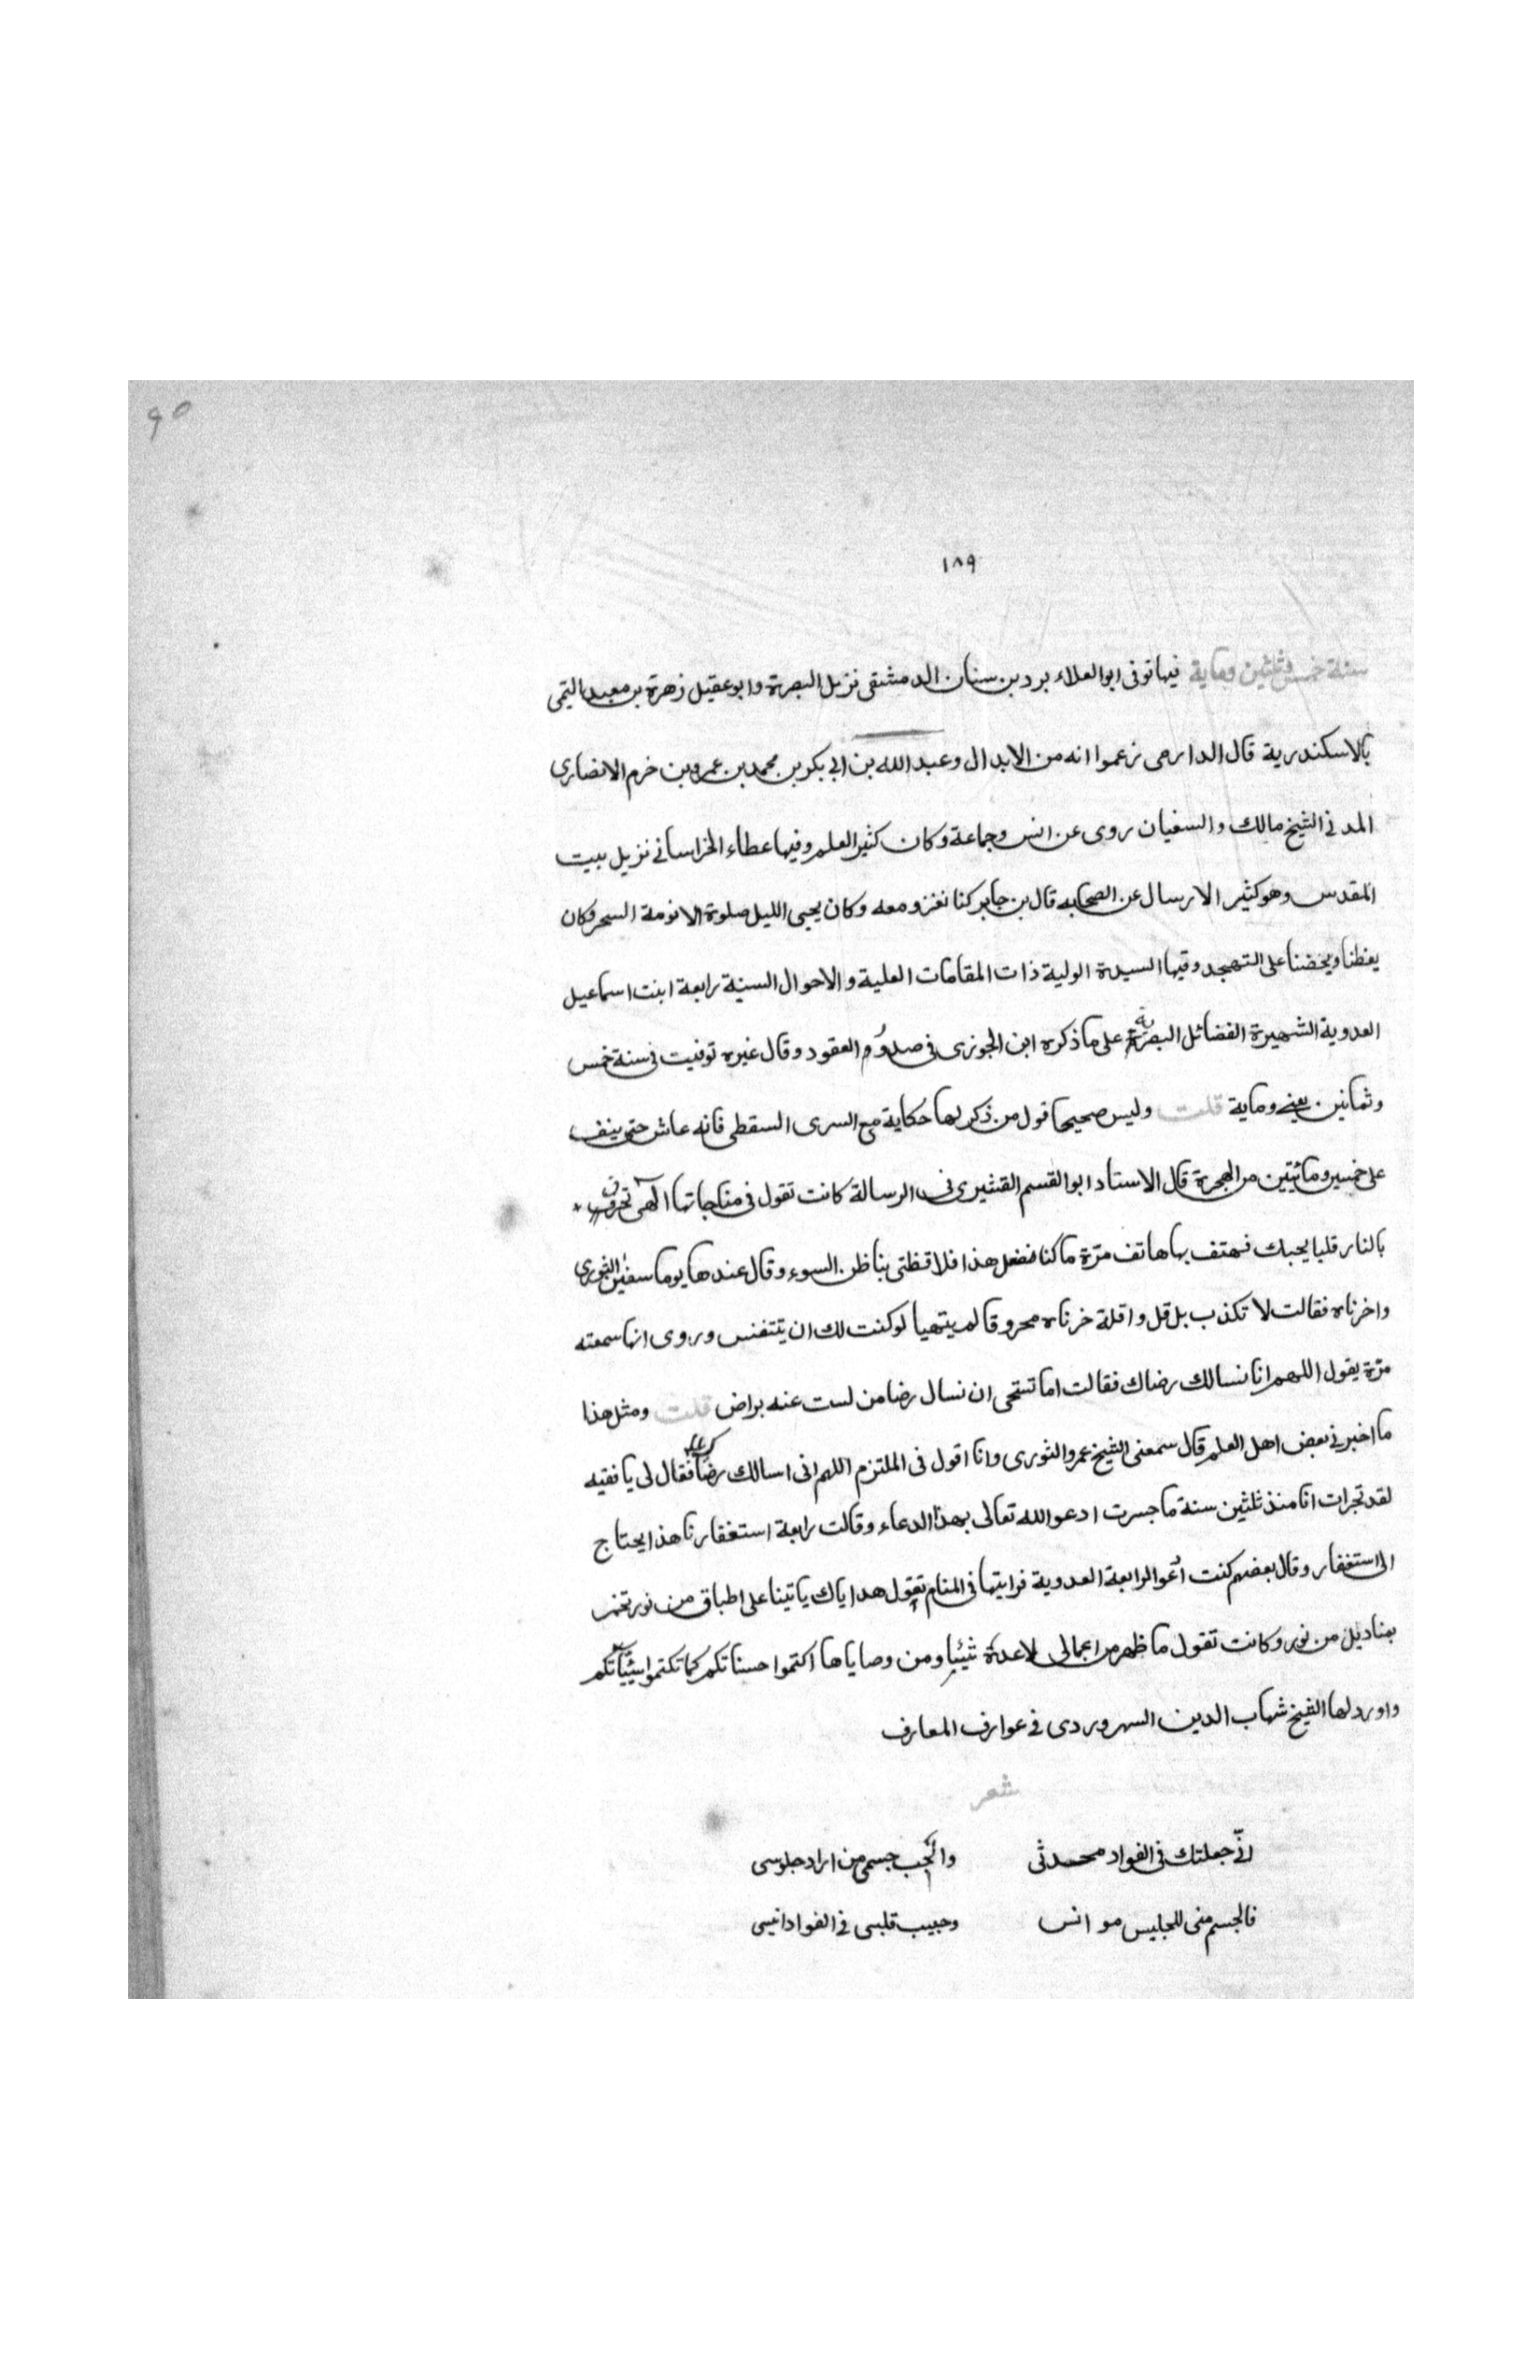 ٩٥
١٨٩
سنة خمس وثلثين ومایة فيها توفى ابو العلاء برد بن سنان الدمشقى نزيل البصرة وابو عقيل زهرة بن معبد التيمى
بالاسكندرية قال الدارمى زعموا انه من الابدال وعبد الله بن ابى بكر بن محمد بن عمرو بن خرم الانصارى
المدنى الشيخ مالك والسفيان روى عن انس وجماعة وكان كثير العلم وفيها عطاء الخراسانى نزيل بيت
المقدس وهو كثير الارسال عن الصحابه قال بن جابر كنا نغزو معه وكان يحيى الليل صلوة الا نومة السحر وكان
يعظنا ويحضنا على التهجد وفيها السيدة الولية ذات المقامات العلية والاحوال السنية رابعة ابنت اسماعيل
العدوية الشهيرة الفضائل البصرية على ما ذكره ابن الجوزى فى صدؤم العقود وقال غيره توفيت فى سنة خمس
وثمانين يعنى وماية قلت وليس صحيحا قول من ذكر لها حكاية مع السرى السقطى فانه عاش حتى ينف
على خمسين ومائتين من الهجرة قال الاستاد ابو القسم القشيرى فى الرسالة كانت تقول فى مناجاتها آلهى تحرق
بالنار قلبا يحبك فهتف بها هاتف مرّة ما كنا نفعل هذا فلا تظنى بنا ظن السوء وقال عندها يوما سفين الثورى
واخزناه فقالت لا تكذب بل قل واقلة خزناه محروقا لم يتهيا لو كنت لك ان يتتفنس وروى انها سمعته
مرّة يقول اللهم انا نسالك رضاك فقالت اما تستحى ان نسال رضا من لست عنه براض قلت ومثل هذا
ما اخبرنى بعض اهل العلم قال سمعنى الشيخ عمرو الثورى وانا اقول فى الملتزم اللهم انى اسالك رضاك فقال لى يا فقيه
لقد تجرات انا منذ ثلثين سنة ما جسرت ادعو الله تعالى بهذا الدعاء وقالت رابعة استغفارنا هذا يحتاج
الى استغفار وقال بعضهم كنت أدعو الرابعة العدوية فرايتها فى المنام تقول هداياك ياتينا على اطباق من نور تخمر
بمناديل من نور وكانت تقول ما ظهر من اعمالى لا عدة شيئا ومن وصاياها اكتموا حسناتكم كما تكتموا سيّئاتكم
واورد لها الشيخ شهاب الدين السهروردى فى عوارف المعارف
شعر
انّى جعلتك فى الفواد محدثى واُحجب جسمى من اراد جلوسى
فالجسم منى للجليس موانس وحبيب قلبى فى الفواد انيسى